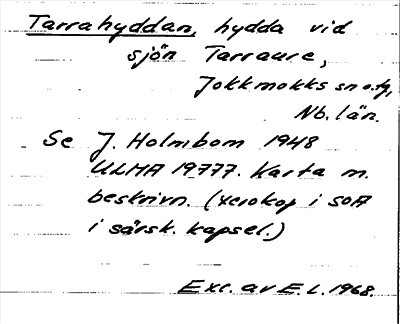 Tarrahyddan, hydda vid
sjön Tarraure,
Jokkmokks sn o. tg,
Nb. län.
Se J. Holmbom 1948
ULMA 19777. Karta m.
beskrivn. (xerokop i SOA
i särsk. kapsel.)
Exc. av E.L. 1968.